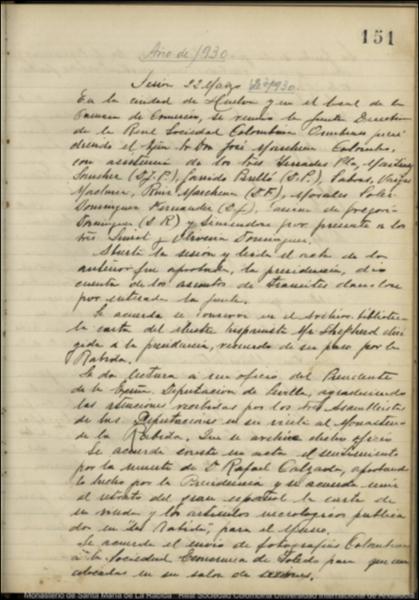 151
Año de 1930
Sesion 22 Mayo de 1930.
En la ciudad de Huelva y en el local de la
Camara de Comercio, se reunio la Junta Directiva
de la Real Sociedad Colombina Onubense presi
diendo el Sr. Dn José Marchena Colombo,
con asistencia de los Sres Terrades Pla, Martinez
Sanchez (D. J. P.), Garrido Perelló (D. P.), Vargas
Marchena (D. F.), Morales
Dominguez Fernandez (D. J.),
Dominguez (D. R) y por presente a los
Sres y Oliveira Dominguez.
Abierta la sesion y leida el acta de la
anterior fue aprobada, la presidencia, dió
cuenta de los asuntos de tramites dandose
por enterada la Junta.
Se acuerda se conserve en el Archivo biblioteca
la carta del ilustre hispanista Mr Shepherd diri
gida a la presidencia, recuerdo de su paso por la
Rabida.
Se da lectura a un oficio del Presidente
de la Excma. Diputacion de Sevilla, agradeciendo
las atenciones recibidas por los Sres Asambleistas
de las Diputaciones en su visita al Monasterio
de la Rabida. Que se archive dicho oficio
Se acuerde conste en acta el sentimiento
por la muerte de D Rafael Calzada, aprobando
lo hecho por la Presidencia y se acuerda unir
al retrato del gran español la carta de
su viuda y los articulos necrologicos publica
dos en "La Rabida", para el Museo.
Se acuerda el envio de fotografias Colombinas
a la Sociedad Comercial de Toledo para que sean
colocadas en su salon de sesiones.
Monasterio de Santa María de La Rábida. Real Sociedad Colombina Onubense